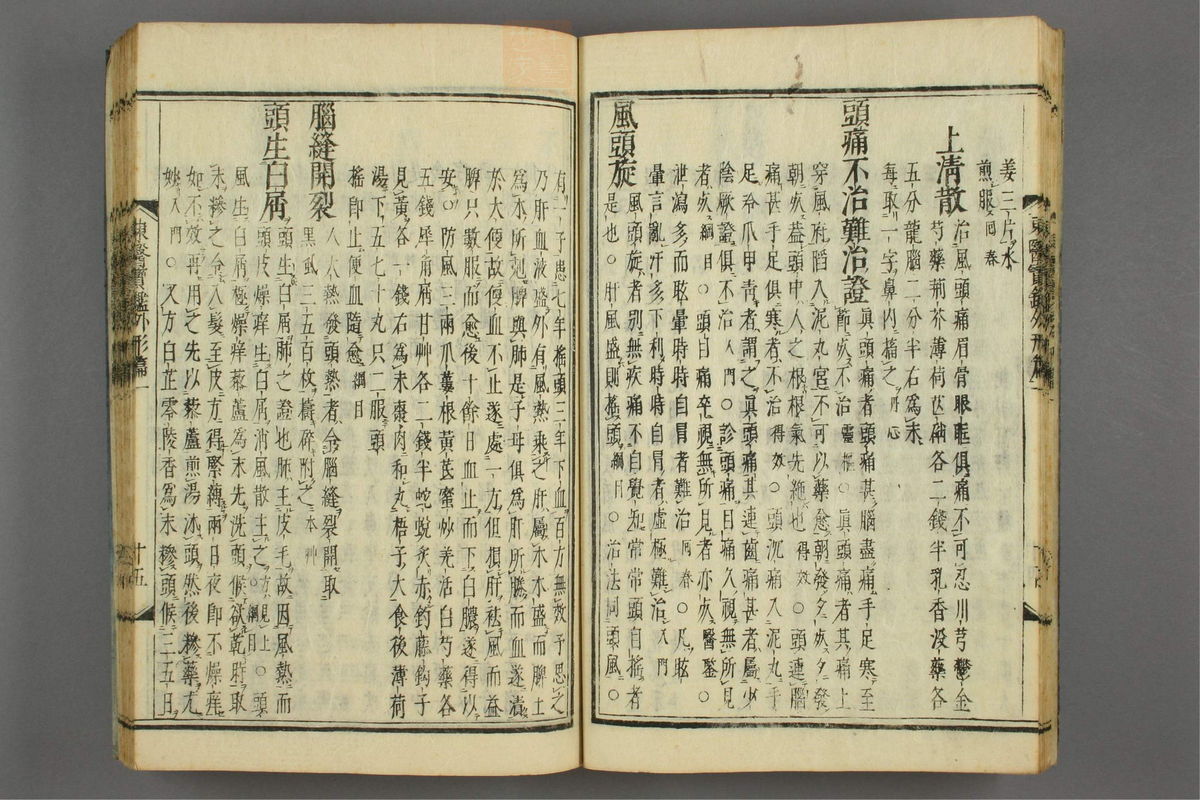 姜三片水
煎服回春
上淸散治風頭痛眉骨眼眶俱痛不可忍川芎鬱金
芍藥荊芥薄荷芒硝各二錢半乳香沒藥各
五分龍腦二分半右爲末
每取一字鼻內㗜之丹心
頭痛不治難治證眞頭痛者頭痛甚腦盡痛手足寒至
節死不治靈樞○眞頭痛者其痛上
穿風府陷入泥丸宮不可以藥愈朝發夕死夕發
朝死蓋頭中人之根根氣先絶也得效○頭連腦
痛甚手足俱寒者不治得效○頭沉痛入泥丸手
足冷爪甲靑者謂之眞頭痛其連齒痛甚者屬少
陰厥證俱不治入門○診頭痛目痛久視無所見
者死綱目○頭目痛卒視無所見者亦死醫鑒○
泄瀉多而眩暈時時自冒者難治回春○凡眩
暈言亂汗多下利時時自冒者虛極難治入門
風頭旋風頭旋者別無疾痛不自覺知常常頭自搖者
是也○肝風盛則搖頭綱目○治法同頭風○
有一子患七年搖頭三年下血百方無效予思之
乃肝血液盛外有風熱乘之肝屬木木盛而脾土
爲木所剋脾與肺是子母俱爲肝所勝而血遂漬
於大便故便血不止遂處一方但損肝祛風而益
脾只數服而愈後十餘日血止而下白膿遂得以
安○防風三兩瓜蔞根黃芪蜜炒羌活白芍藥各
五錢犀角屑甘艸各二錢半蛇蛻炙赤釣藤鉤子
麻黃各一錢右爲末棗肉和丸梧子大食後薄荷
湯下五七十丸只二服頭
搖卽止便血隨愈綱目
腦縫開裂人大熱發頭熱者令腦縫裂開取
黑虱三五百枚擣碎附之本艸
頭生白屑頭生白屑肺之證也肺主皮毛故因風熱而
頭皮燥痒生白屑消風散主之方見上○綱目○頭
風生白屑極燥痒藜蘆爲末先洗頭候欲乾時取
末摻之令入髮至皮方得緊縛兩日夜卽不燥痒
如不效再用之先以藜蘆煎湯沐頭然後摻藥尤
妙入門○又方白芷零陵香爲末摻頭候三五日
東醫寶鑑外形篇一
十五